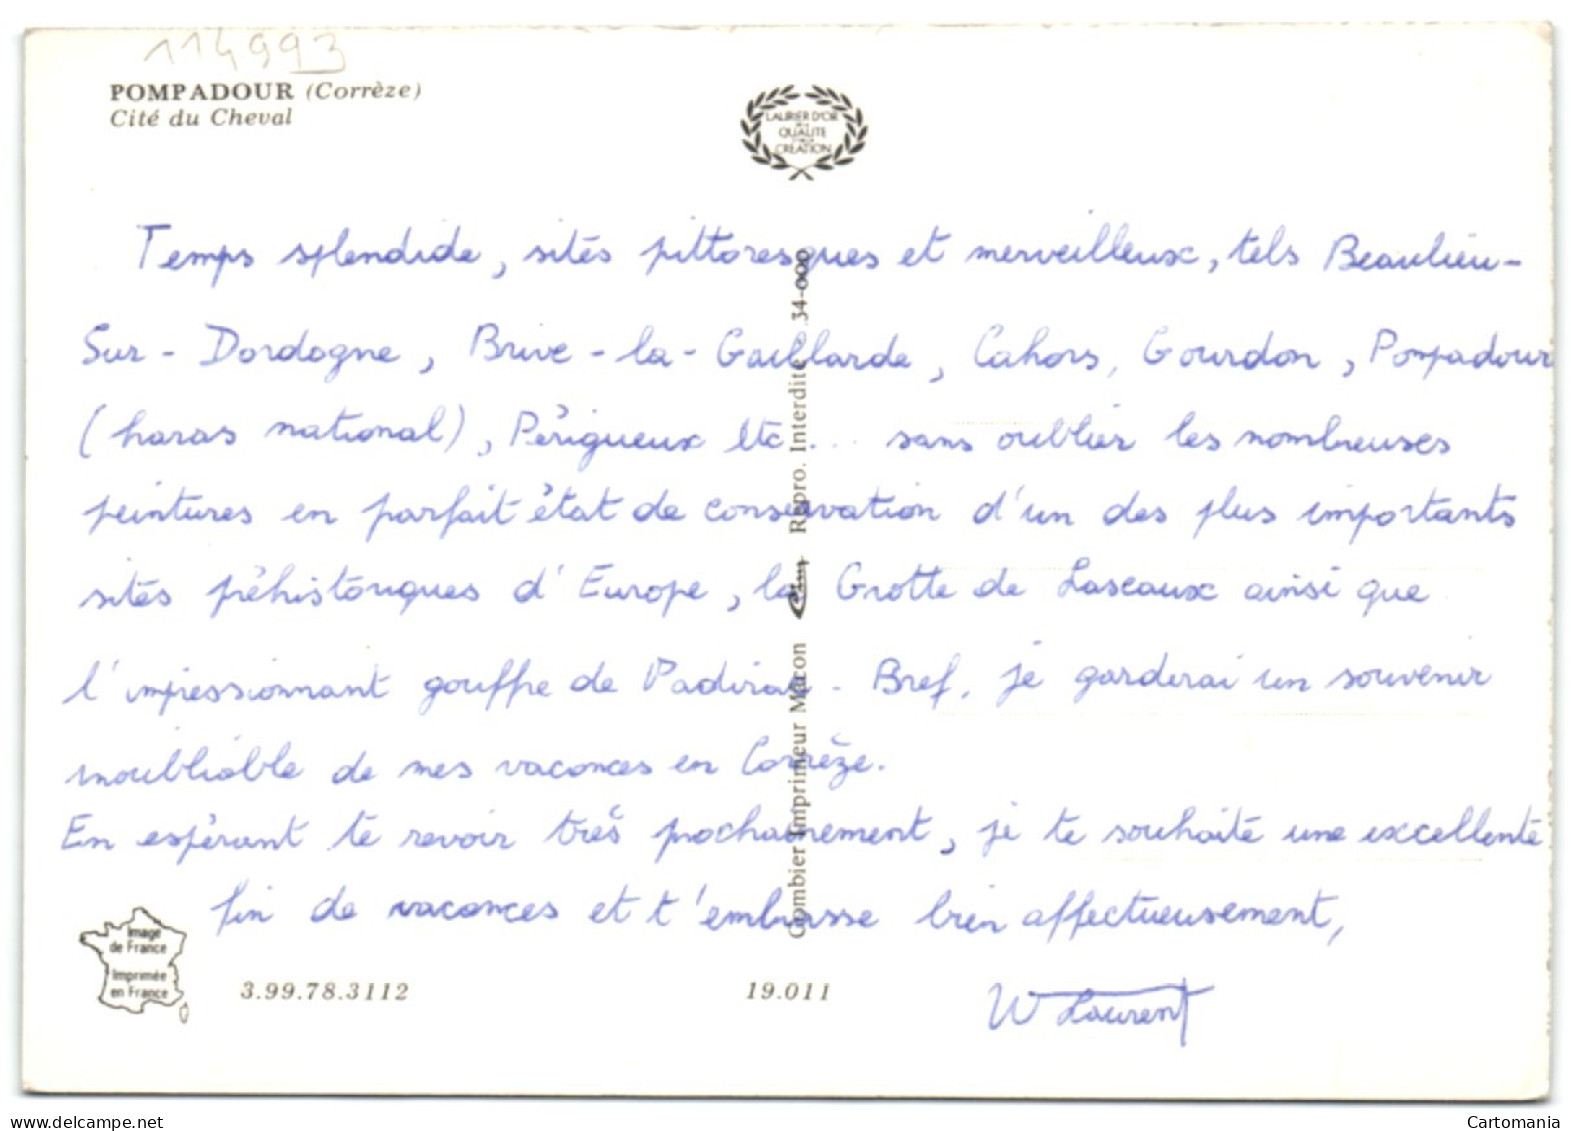 114993
POMPADOUR (Corrèze)
Cité du Cheval
LAURIER D'OR
DE LA
QUALITE
CREATION
Temps splendide, sités pittoresques et merveilleux, tels Beaulieu-
Sur-Dordogne, Brive-la-Gaillarde, Cahors, Gourdon, Pompadour
(haras national), Périgueux etc... sans oublier les nombreuses
peintures en parfait état de conservation d'un des plus importants
sités préhistoriques d'Europe, la Grotte de Lascaux ainsi que
l'impressionnant gouffre de Padirac. Bref, je garderai un souvenir
inoubliable de mes vacances en Corrèze.
En espérant te revoir très prochainement, je te souhaite une excellente
fin de vacances et t'embrasse bien affectueusement,
W Laurent
Combier Imprimeur Macon Cim Repro. Interdite 34-000
Image
de France
Imprimée
en France
3.99.78.3112
19.011
Cartomania